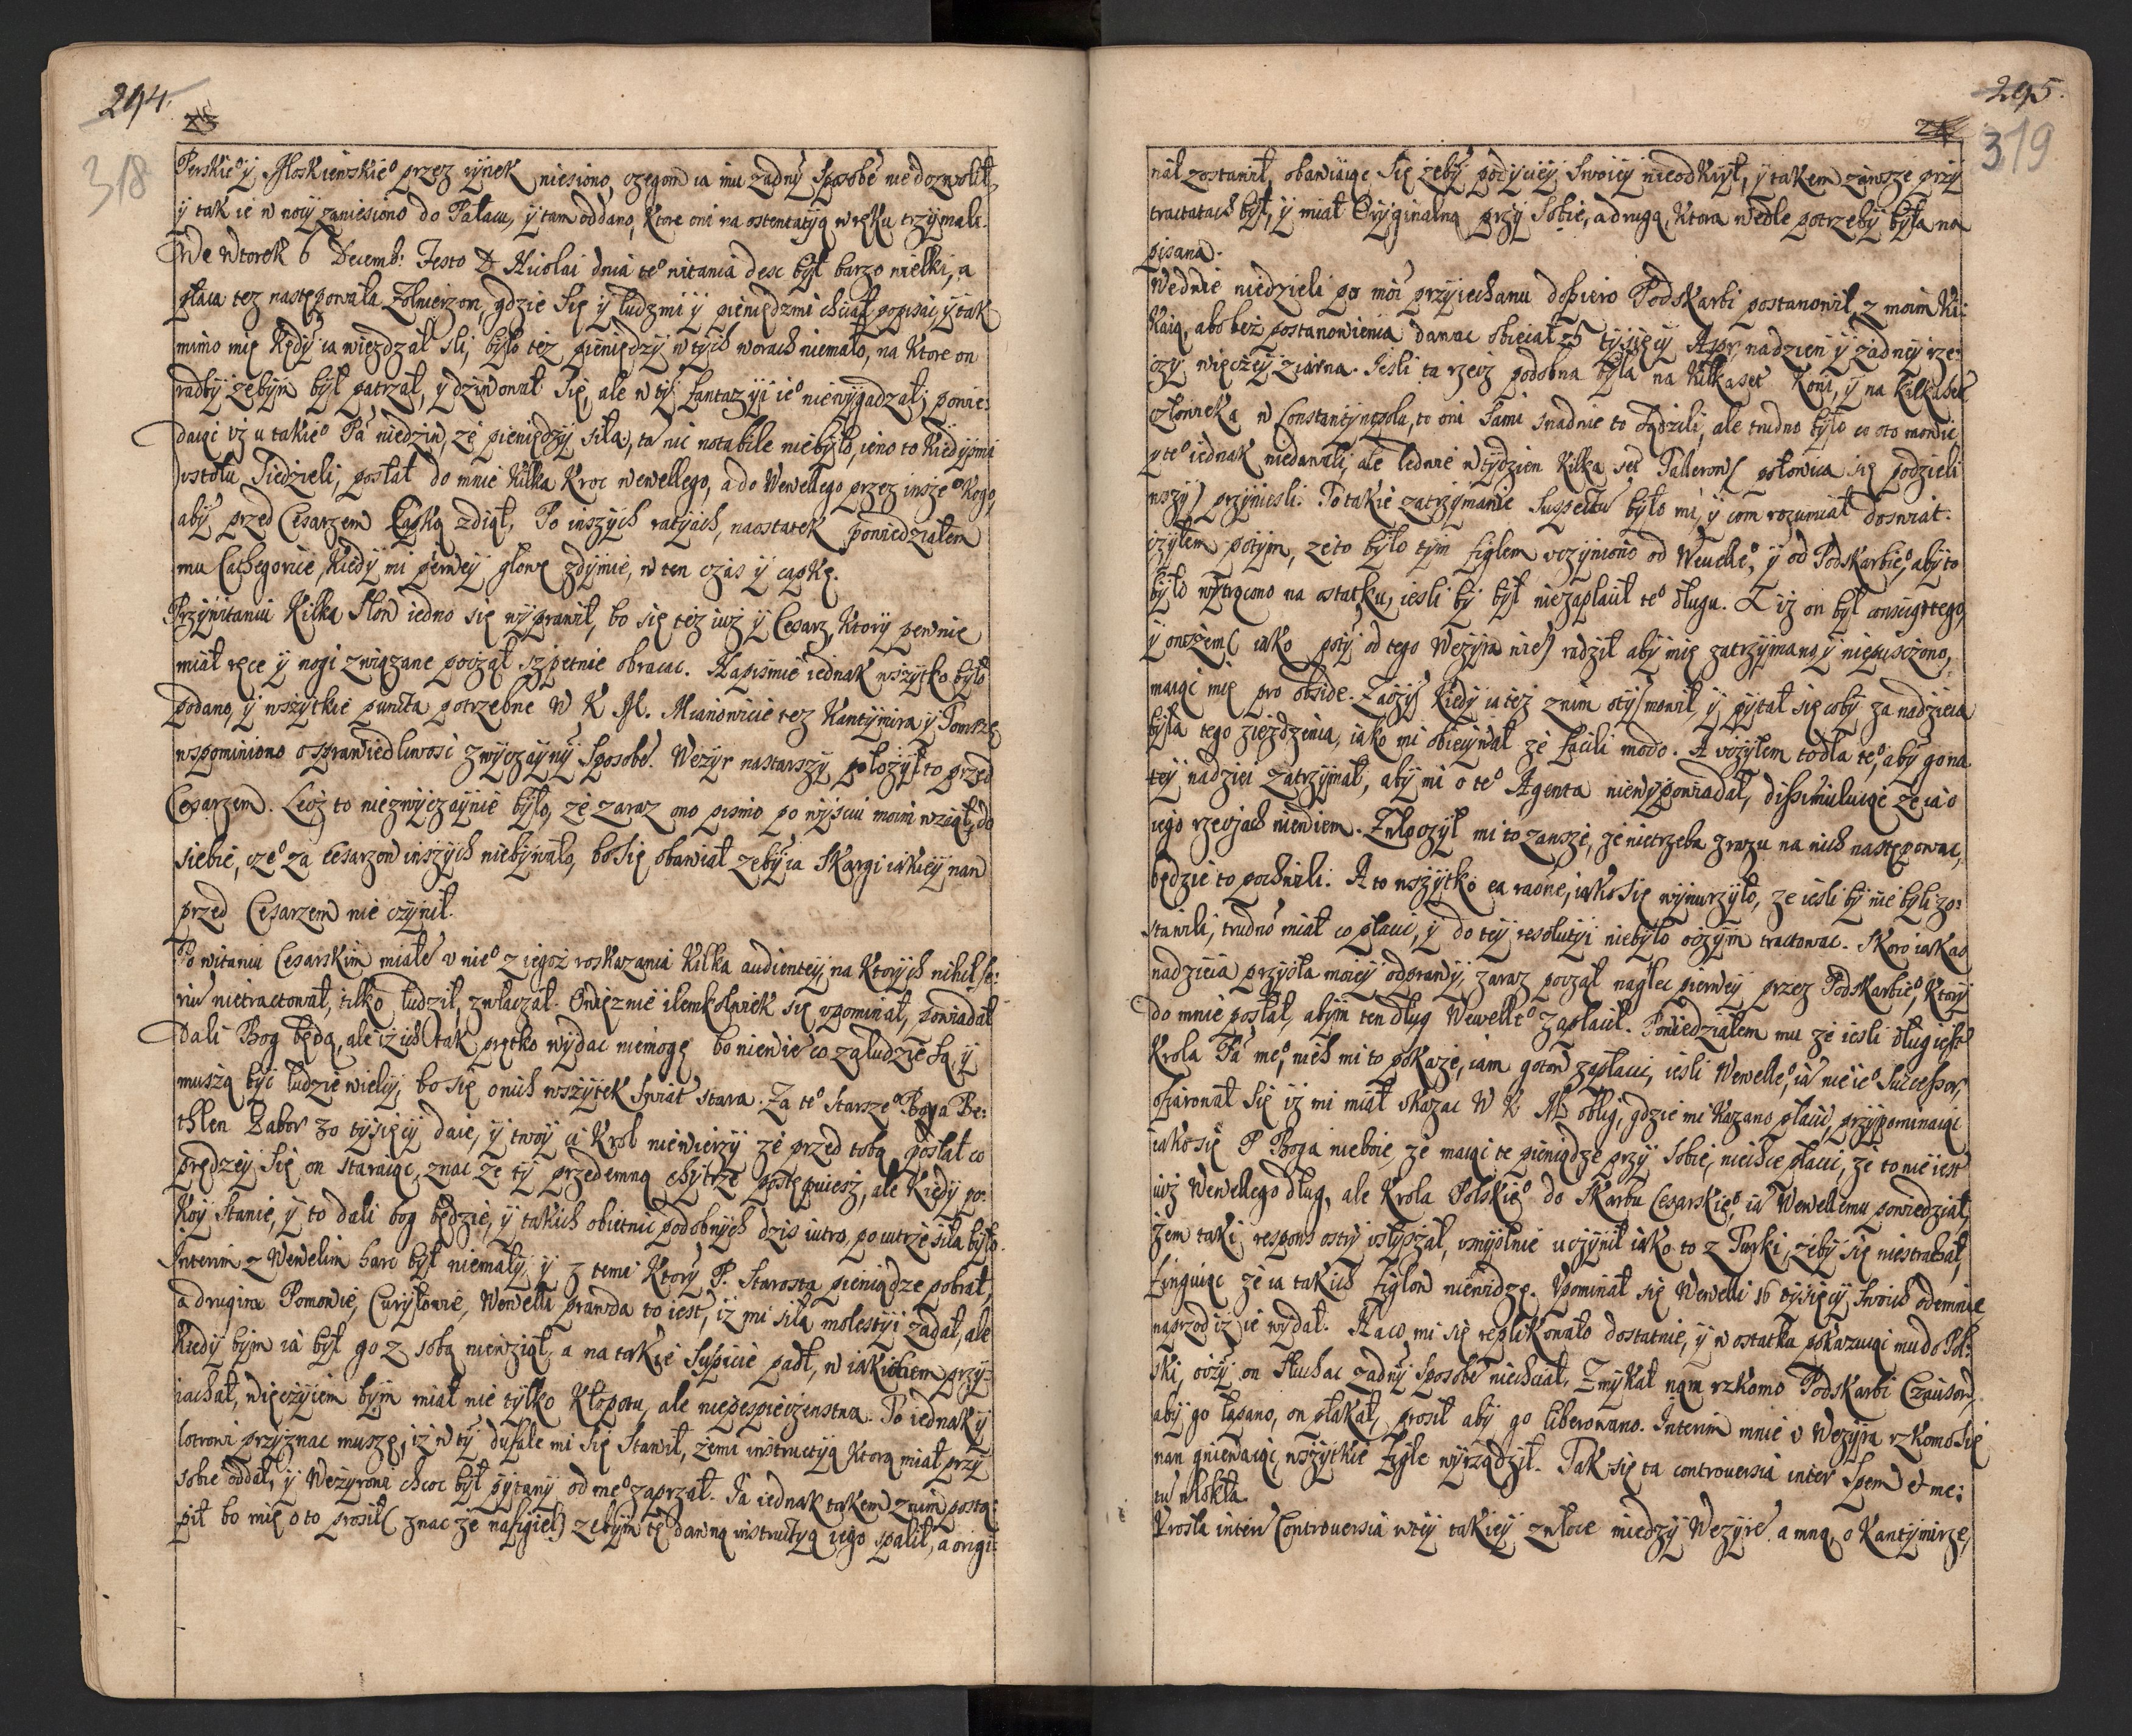 294.
23
318
Perskie° y Moskiewskie° przez rynek niesiono, czegom ia mu zadny sposobe niedozwolił,
y tak ie w nocy zaniesiono do Pałacu, y tam oddano, Ktore oni na ostentatyą w ręku trzymali.
We Wtorek 6 Decemb: Festo D Nicolai dnia te° witania desc był barzo wielki, a
płaca tez następowała Zołnierzom, gdzie się y ludzmi y pieniędzmi chciał popisać, y tak
mimo mię Kędy ia wiezdzał sli, było tez pieniędzy w tych worach niemało, na Ktore on
radby zebym był patrzał, y dziwował się, ale w ty fantazyi ie° niewygadzał; powie:
daiąc iz u takie° Pa niedziw, ze pieniędzy siła, ta nic notabile niebyło, ieno to Kiedysmi
v stołu siedzieli, posłał do mnie Kilka Kroc Wewellego, a do Wewellego przez insze° Kogo,
aby przed Cesarzem Czapkę zdiął, Po inszych ratyach, naostatek powiedziałem
mu Cathegorice, Kiedy mi pierwey głowę zdymie, w ten czas y czapkę.
Przywitaniu Kilka słow iedno się wyprawił, bo się tez iuz y Cesarz, Ktory pewnie
miał ręce y nogi związane począł szpetnie obracac. Napismie iednak wszytko było
podano, y wszytkie puncta potrzebne W K M. Mianowicie tez Kantymira y Tomszę
wspominiono o sprawiedliwosc zwyczayny sposobe. Wezyr nastarszy połozył to przed
Cesarzem. Lecz to niezwyczaynie było, ze zaraz ono pismo po wysciu moim wziął, do
siebie, cze° za Cesarzow inszych niebywało, bo się obawiał zeby ia Skargi iakiey nan
przed Cesarzem nie czynił.
Po witaniu Cesarskim miałe v nie° z iegoz roskazania Kilka audientey, na Ktorych nihil se:
riu nietractował, tilko łudził, zwłaczał. O więznie ilemkolwiek się vpominał, powiadał
Dali Bog będą, ale iz ich tak prętko wydac niemogę bo niewie co za ludzie są, y
muszą byc ludzie wielcy, bo się o nich wszytek swiat stara. Za te° starsze° Boga Be:
thlen Gabor 30 tysięcy daie, y twoy ci Krol niewierzy ze przed tobą posłał co
prędzey się on staraiąc, znac ze ty przedemną chytrze postępuiesz, ale Kiedy po:
Koy stanie, y to dali bog będzie, y takich obietnic podobnych dzis iutro, po iutrze siła było.
Interim z Wewelim harc był niemały, y z temi Ktory P. Starosta pieniądze pobrał,
a drugim Pomowie, Curyłowie, Wewelli prawda to iest, iz mi siła molestyi zadał, ale
Kiedy bym ia był go z sobą niewziął, a na takie suspicie padł, w iakichem przy:
iachał, więczyiem bym miał nie tylko Kłopotu, ale niepespieczenstwa. To iednak y
łotrowi przyznac muszę, iz w ty dufale mi się stawił, zemi instructyą Ktorą miał przy
sobie oddał, y Wezyrowi choc był pytany od me° zaprzał. Ia iednak takem z nim postą:
pił bo mię o to prosił (znac ze nafigiel) zebym tę dawną instructyą iego spalił, a origi:
295.
24
319
nał zostawił, obawiaiąc się zeby poczciwey swoiey nieodkrył, y takem zawsze przy
tractatach był, y miał Oryginalną przy sobie, a drugą, Ktora wedle potrzeby była na
pisana.
We dwie niedzieli po moi przyiechaniu dopiero Podskarbi postanowił, z moim Ki:
Kaią, abo bez postanowienia dawac obiecał 25 tysięcy Aspr, nadzien y zadney rze:
czy więczey ziarna. Iesli ta rzecz podobna była na Kilkaset Koni, y na Kilkaset
człowieka w Constantynopolu, to oni sami snadnie to osądzili, ale trudno było co oto mowic,
y te° iednak niedawali, ale ledwie w tydzien Kilka set Tallerow (połowica się podzieli
wszy) przyniesli. To takie zatrzymanie suspectu było mi, y com rozumiał doswiat:
czyłem potym, ze to było tym figlem vczyniono od Wewelle°, y od Podskarbie°, aby to
było wytrącono na ostatku, iesli by był niezapłacił te° długu. I iz on był conscius tego,
y owszem (iako poty od tego Wezyra wie) radził aby mię zatrzymano, y niepusczono,
maiąc mię pro obside. Zaczy Kiedy ia tez z nim o ty mowił, y pytał się coby za nadzieia
była tego ziezdzenia, iako mi obiecywał ze facili modo. A vczyłem to dla te°, aby go na
tey nadziei zatrzymał, aby mi o te° Agenta niewypowiadał, dissimuluiąc ze ia o
iego rzeczach niewiem. Tłuoczył mi to zawsze, ze nietrzeba zrazu na nich następowac,
będzie to pochwili. A to wszytko ea ratione, iako się wynurzyło, ze iesli by nie byli zo:
stawili, trudno miał co płacic, y do tey resolutyi niebyło oczym tractowac. Skoro iakas
nadzieia przyszła moiey odprawy, zaraz począł naglec pierwey przez Podskarbie°, Ktory
do mnie posłał, abym ten dług Wewelle° zapłacił. Powiedziałem mu ze iesli dług iest
Krola Pa me°, niech mi to pokaze, iam gotow zapłacic, iesli Wewelle°, ia nie ie° Successor,
ofiarował się iz mi miał vkazac W K M oblig, gdzie mi Kazano płacic, przypominaiąc
iako się P Boga nieboie, ze maiąc te pieniądze przy sobie, niechce płacic, ze to nie iest
iuz Wewellego dług, ale Krola Polskie° do Skarbu Cesarskie°, ia Wewellemu powiedział,
zem taki respons ostry vsłyszał, vmyslnie uczynił iako to z Turki, zeby się niestrachał,
finguiąc ze ia takich figlow niewidzę. Vpominał się Wewelli 16 tysięcy swoich odemnie
naprzod iz ie wydał. Na co mi się replikowało dostatnie, y w ostatku pokazuiąc mu do Pol:
ski, oczy on słuchac zadny sposobe niechciał, Zmykał nąm rzkomo Podskarbi Czausow,
aby go łapano, on płakał, prosił aby go liberowano. Interim mnie v Wezyra rzkomo się
nan gniewaiąc wszytkie figle wyrządził. Tak się ta controuersia inter spem et me:
tu wlokła.
Vrosła inter Controuersia wtey takiey zwłoce miedzy Wezyre a mną, o Kantymirze,